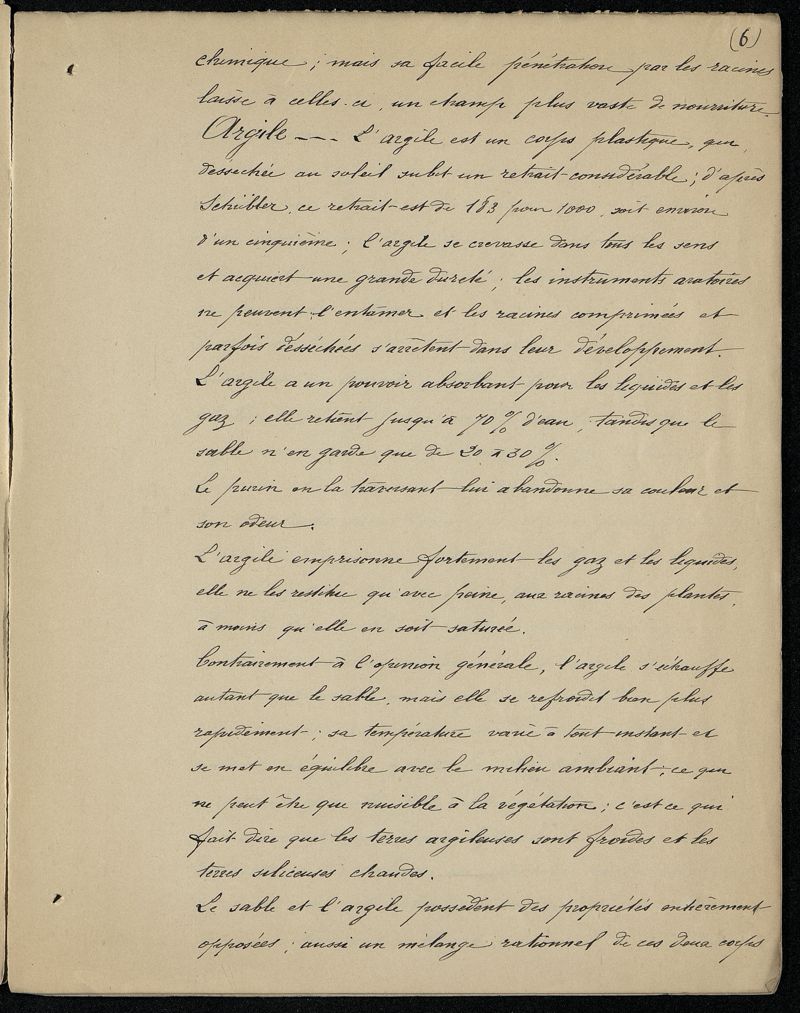 (6)
chimique ; mais sa facile pénétration par les racines
laisse à celles-ci, un champ plus vaste de nourriture.
Argile --- L'argile est un corps plastique, qui,
desséchée au soleil subit un retrait considérable ; d'après
Schübler, ce retrait est de 183 pour 1000, soit environ
d'un cinquième ; l'argile se crevasse dans tous les sens
et acquiert une grande dureté ; les instruments aratoires
ne peuvent l'entamer et les racines comprimées et
parfois désséchées s'arrêtent dans leur développement.
L'argile a un pouvoir absorbant pour les liquides et les
gaz ; elle retient jusqu'à 70 % d'eau, tandis que le
sable n'en garde que de 20 à 30 %.
Le purin en la traversant lui abandonne sa couleur et
son odeur.
L'argile emprisonne fortement les gaz et les liquides,
elle ne les restitue qu'avec peine, aux racines des plantes,
à moins qu'elle en soit saturée.
Contrairement à l'opinion générale, l'argile s'échauffe
autant que le sable, mais elle se refroidit bien plus
rapidement ; sa température varie à tout instant et
se met en équilibre avec le milieu ambiant, ce qui
ne peut être que nuisible à la végétation ; c'est ce qui
fait dire que les terres argileuses sont froides et les
terres siliceuses chaudes.
Le sable et l'argile possèdent des propriétés entièrement
opposées ; aussi un mélange rationnel de ces deux corps